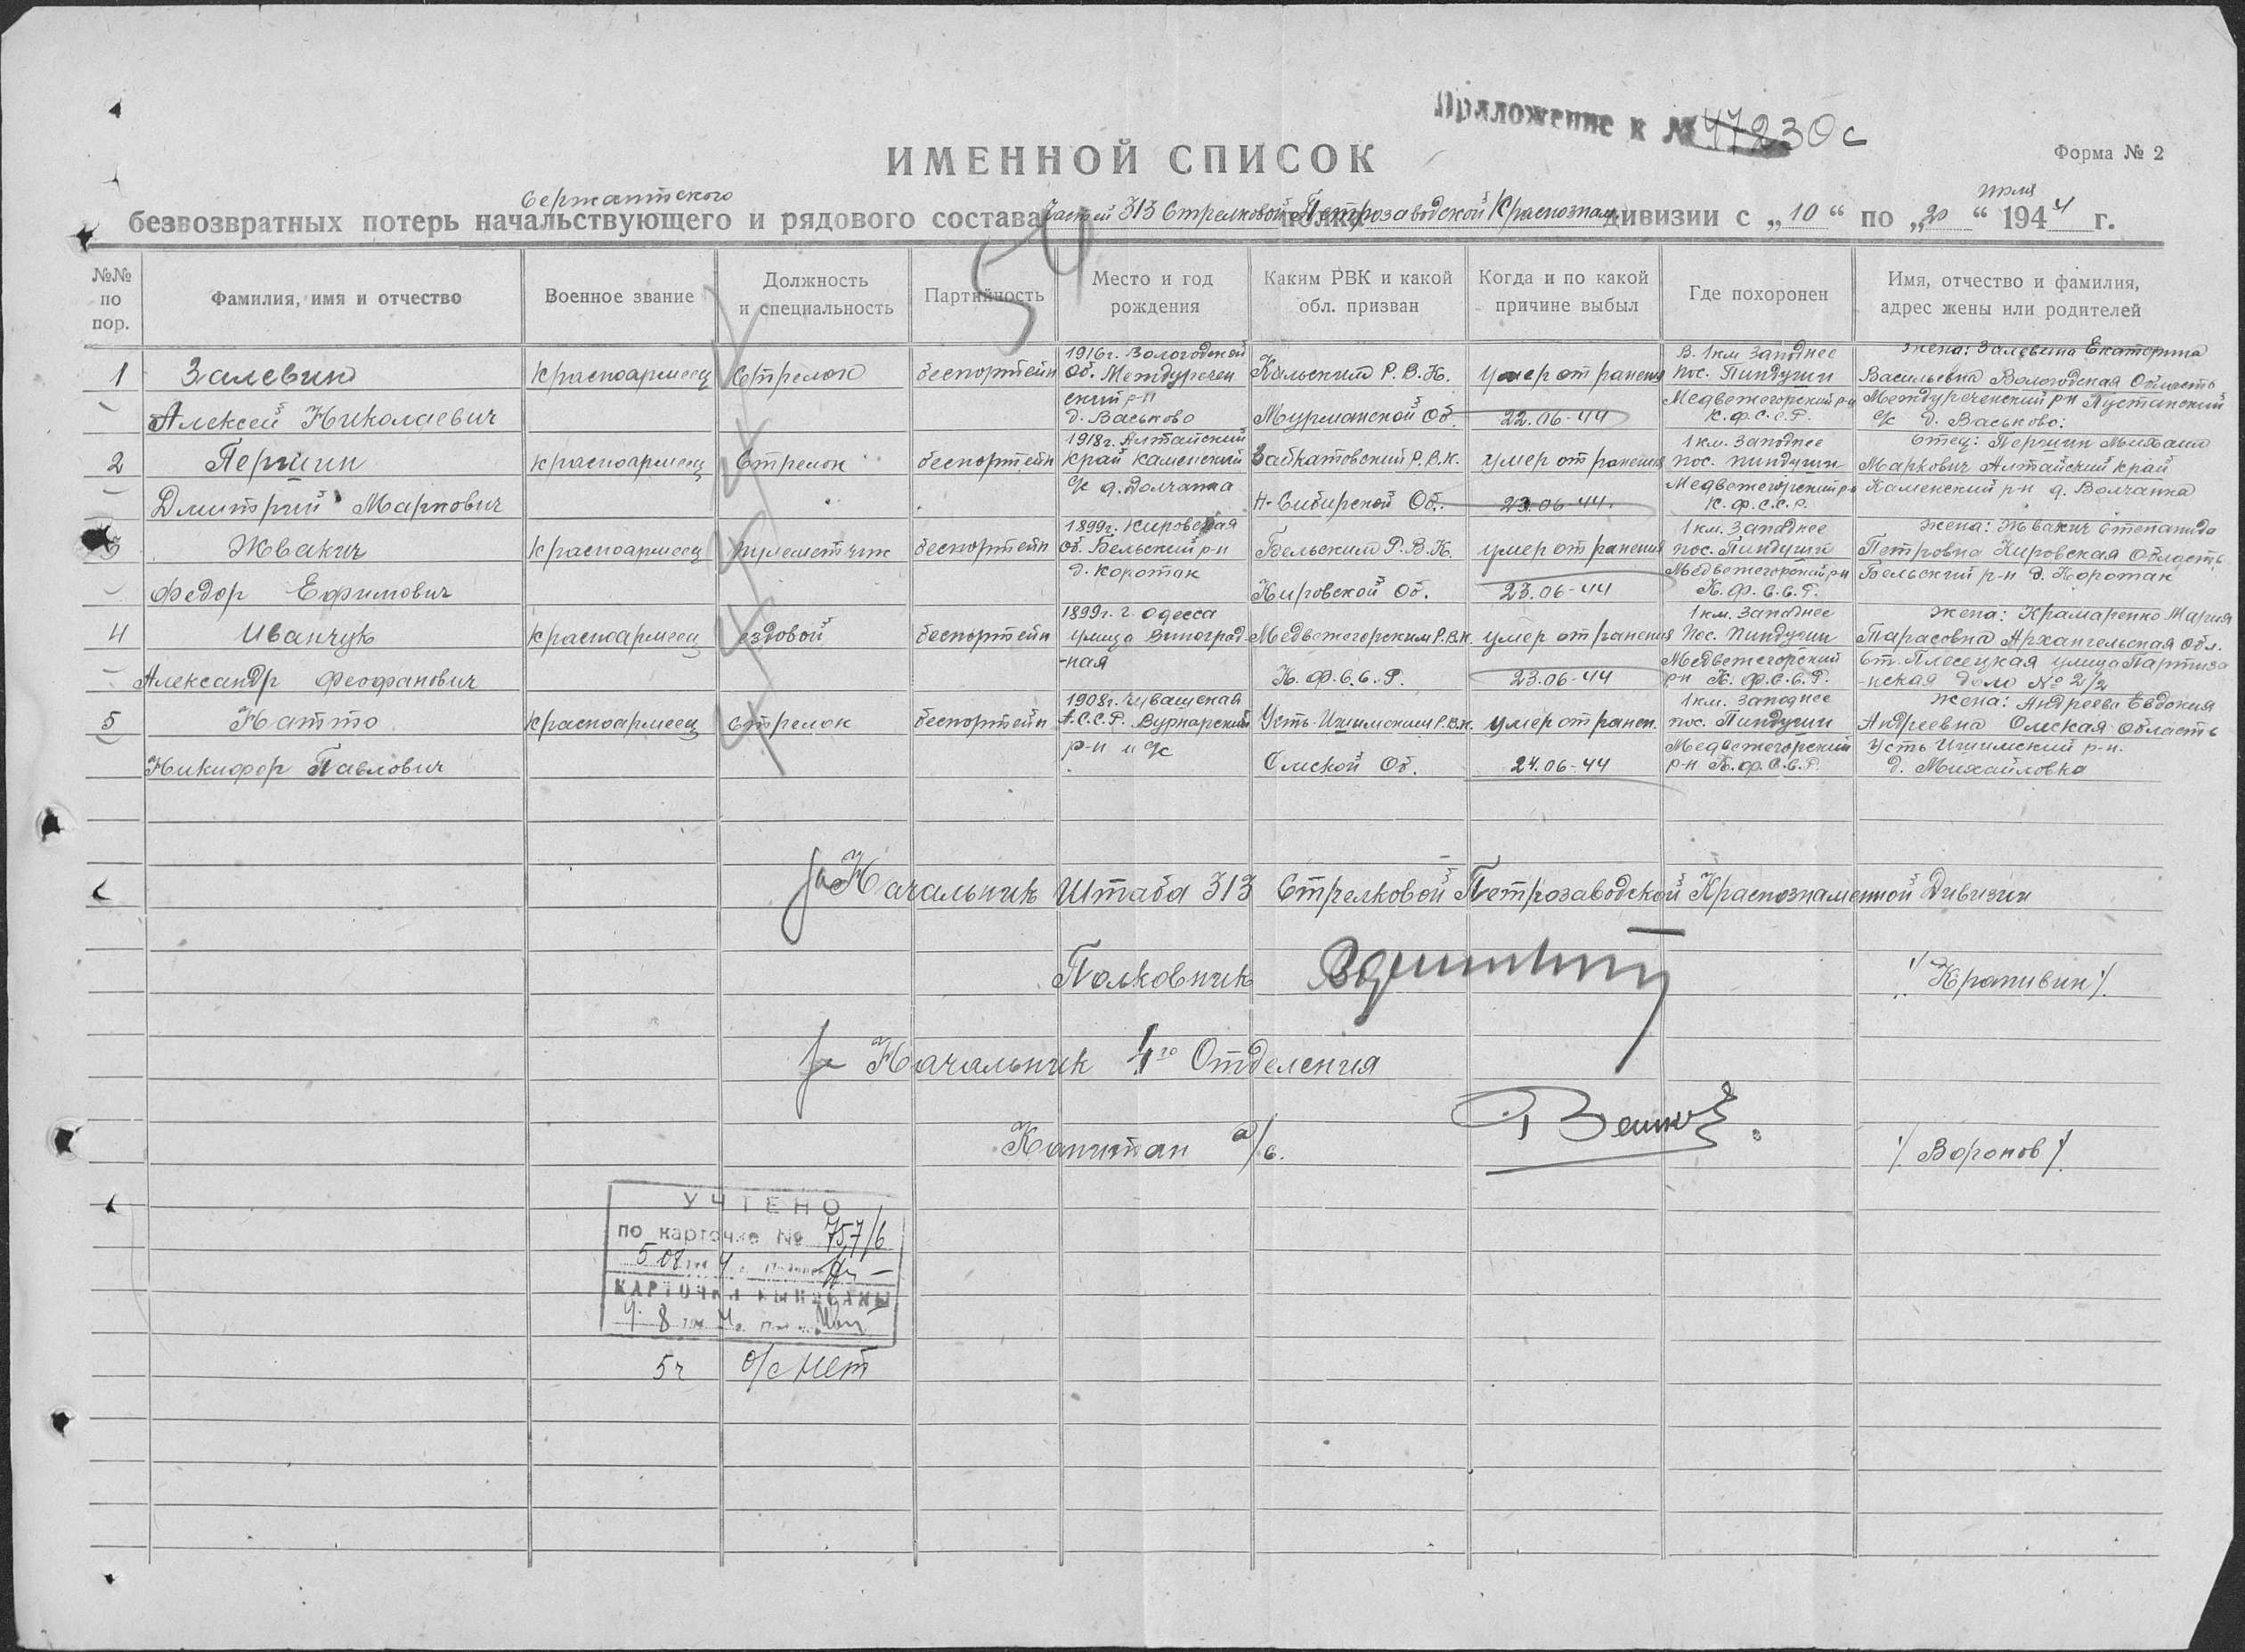 Приложение к № 47230с
ИМЕННОЙ СПИСОК
Форма № 2
сержантского
июля
безвозвратных потерь начальствующего и рядового состава частей 313 Стрелковой Петрозаводской Краснознам. дивизии с „10“ по „20“ 1944 г.
54
№№ по пор.
Фамилия, имя и отчество
Военное звание
Должность и специальность
Партийность
Место и год рождения
Каким РВК и какой обл. призван
Когда и по какой причине выбыл
Где похоронен
Имя, отчество и фамилия, адрес жены или родителей
1
Залевин
Алексей Николаевич
Красноармеец
Стрелок
беспортейн
1916г. Вологодской
Об. Междуречен
ский р-н
д. Васьково
Кольским Р.В.К.
Мурманской Об.
умер от ранения
22.06-44
В. 1км западнее
пос. Пиндуши
Медвежегорский р-н
К.Ф.С.С.Р.
жена: Залевина Екатерина
Васильевна Вологодская Область
Междуреченский р-н Пустанский
с/с д. Васьково.
2
Першин
Дмитрий Маркович
красноармеец
Стрелок
беспортейн
1918г. Алтайский
край Каменский
с/с д. Волчанка
Р.В.К.
Н-Сибирской Об.
умер от ранения
23.06-44.
1км. западнее
пос. пиндуши
Медвежегорский р-н
К.Ф.С.С.Р.
Отец: Першин Михаил
Маркович Алтайский край
Каменский р-н д. Волчанка
3
Жвакин
Федор Ефимович
Красноармеец
пулеметчик
беспортейн
1899г. Кировская
Об. Бельский р-н
д. Коротак
Бельским Р.В.К.
Кировской Об.
умер от ранения
23.06-44
1км. западнее
пос. Пиндуши
Медвежегорский р-н
К.Ф.С.С.Р.
жена: Жвакич Степанида
Петровна Кировская Область
Бельский р-н д. Коротак
4
Иванчук
Александр Феофанович
Красноармеец
ездовой
беспортейн
1899г. г. Одесса
улица Виноград
-ная
Медвежегорским Р.В.К.
К.Ф.С.С.Р.
умер от ранения
23.06-44
1км. западнее
Пос. Пиндуши
Медвежегорский
р-н К.Ф.С.С.Р.
жена: Крамаренко Мария
Тарасовна Архангельская обл.
ст. Плесецкая улица Партиза
-нская дом № 2/2
5
Натто
Никифор Павлович
Красноармеец
Стрелок
беспортейн
1908г. Чувашская
А.С.С.Р. Вурнарский
р-н и с/с
Усть-Ишимским Р.В.К.
Омской Об.
умер от ранен.
24.06-44
1км. западнее
пос. Пиндуши
Медвежегорский
р-н К.Ф.С.С.Р.
жена: Андреева Евдокия
Андреевна Омская область
Усть Ишимский р-н.
д. Михайловка
За Начальник Штаба 313 Стрелковой Петрозаводской Краснознаменной Дивизии
Полковник
/Крапивин/
За Начальник 4го Отделения
Капитан а/с.
/Воронов/
УЧТЕНО
по карточке № 757/6
КАРТОЧКИ ВЫПИСАНЫ
5ч о/с нет